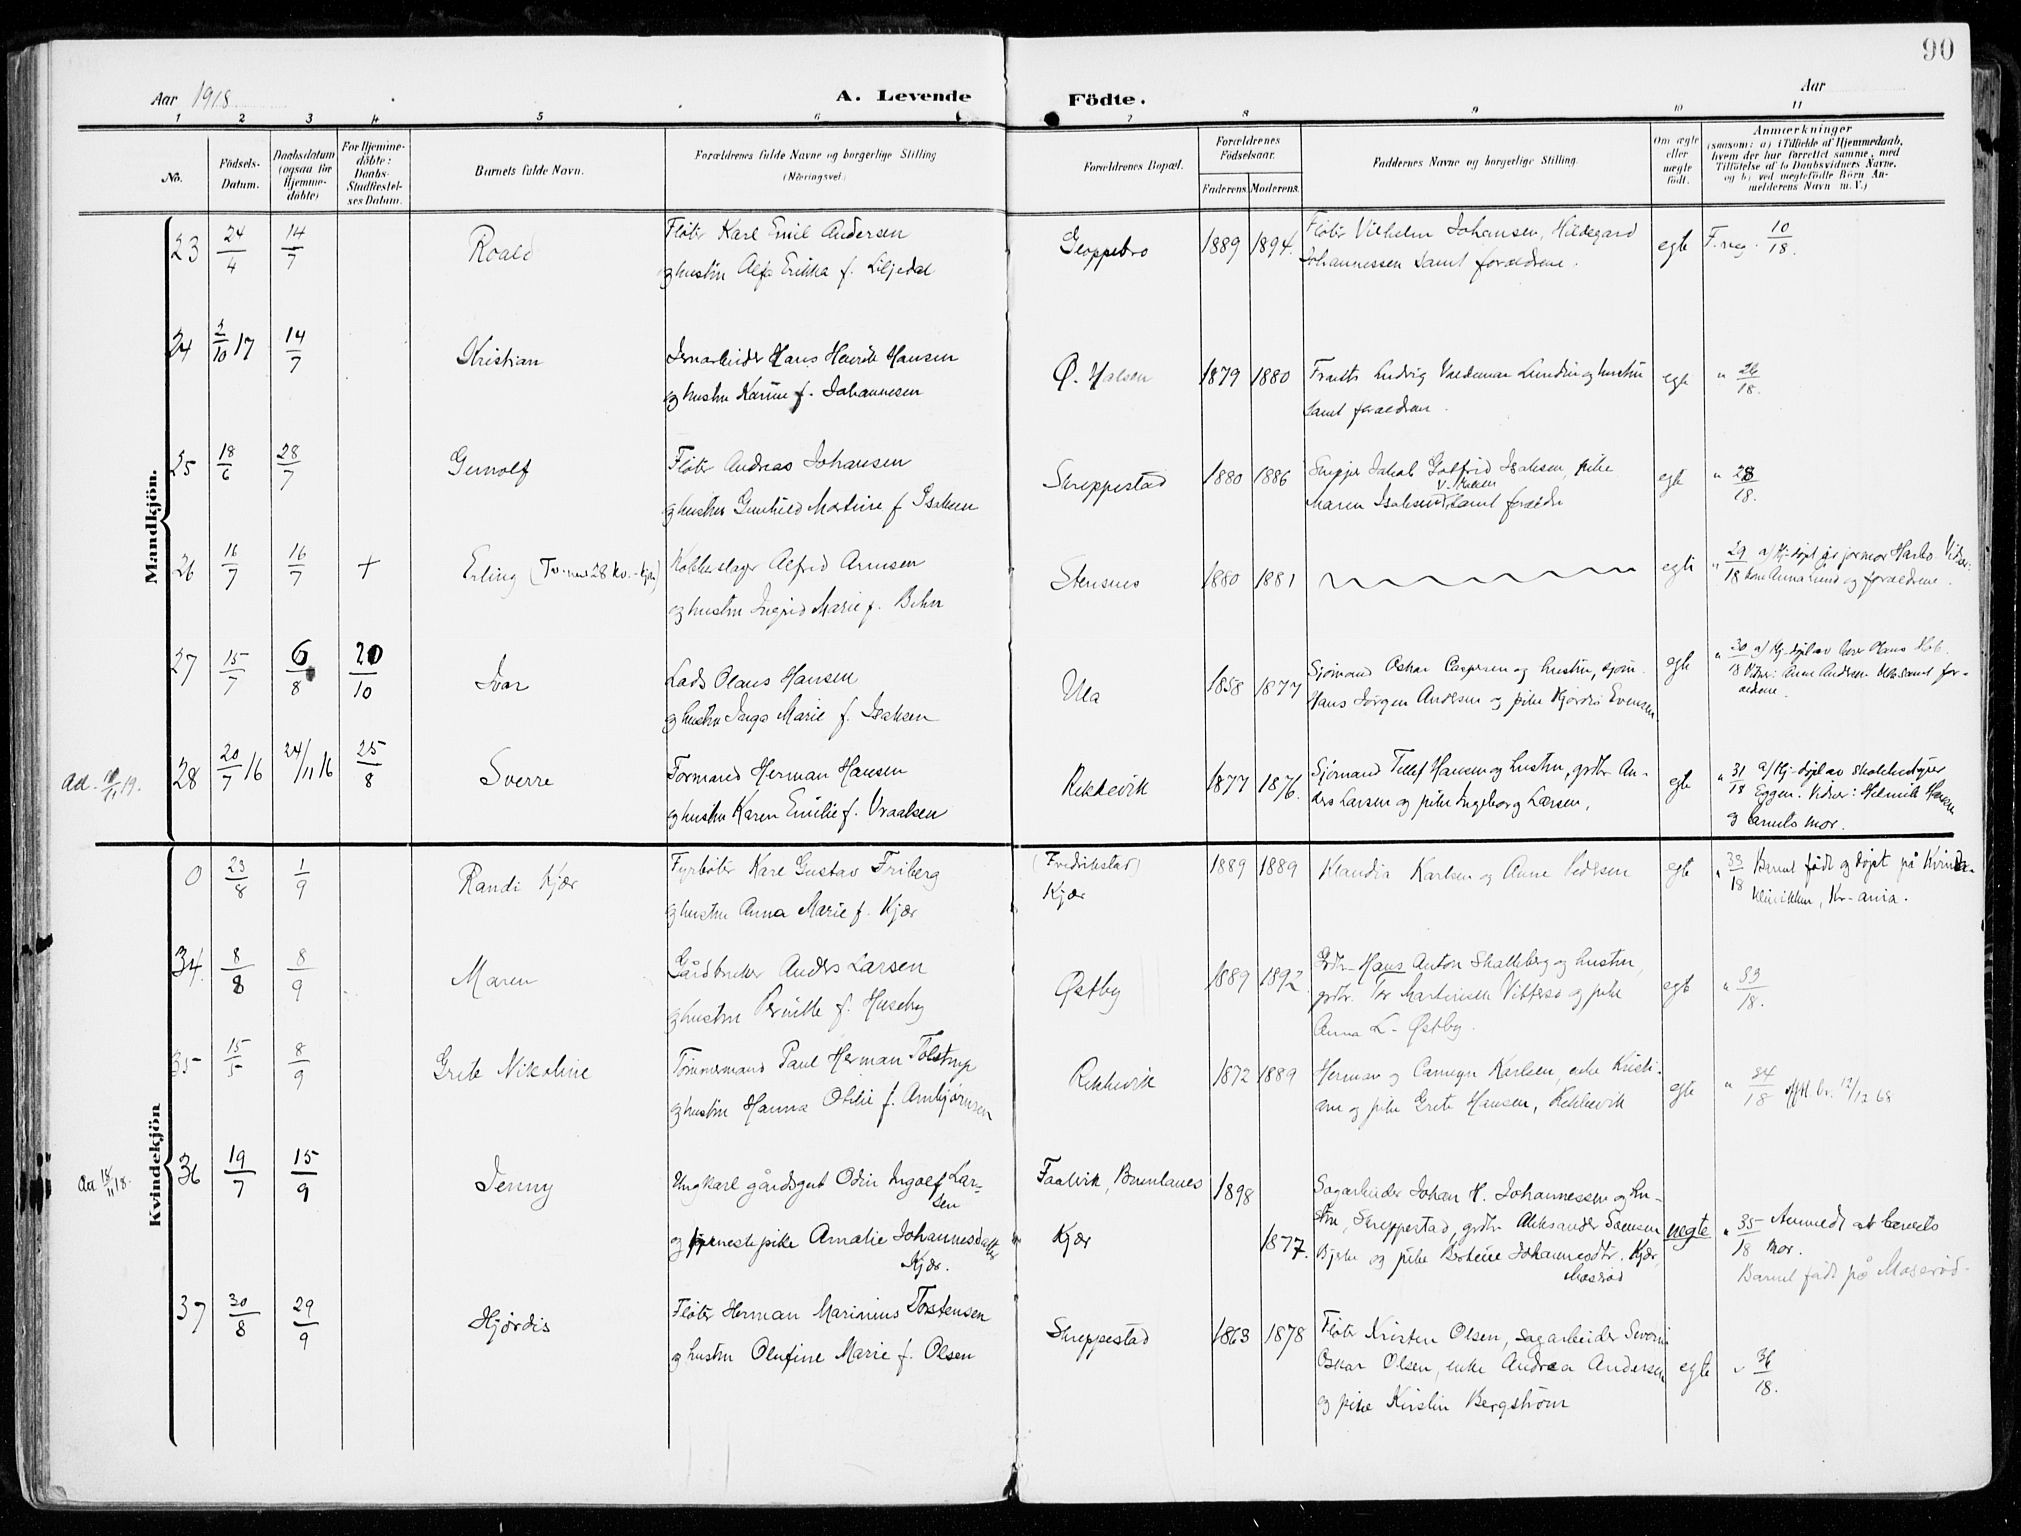 90
Aar 1918
A. Levende Födte.
Aar
1 2 3 4 5 6 7 8 9 10 11
No.
Födsels-
Datum.
Daabsdatum
(ogsaa for
Hjemme-
døbte)
For Hjemme-
døbte:
Daabs-
Stadfæstel-
ses Datum.
Barnets fulde Navn.
Forældrenes fulde Navne og borgerlige Stilling
(Næringsvei.)
Forældrenes Bopæl.
Forældrenes
Födselsaar.
Faderens. Moderens.
Faddernes Navne og borgerlige Stilling.
Om ægte
eller
uægte
født.
Anmærkninger
(saasom: a) i Tilfælde af Hjemmedaab,
hvem der har forrettet samme, med
Tilføielse af to Daabsvidners Navne.
og b) ved uægtefødte Börn An-
melderens Navn m. V.)
Mandkjön.
23 24/4 14/7 Roald
Fløter Karl Emil Andersen
og hustru Alfa Erikka f. Liljedal
Gloppebro 1889 1894.
Fløter Vilhelm Johansen, Hildegard
Johannessen samt forældrene.
egte F.reg. 10/18.
24 2/10 17 14/7 Kristian
Jernarbeider Hans Henrik Hansen
og hustru Karine f. Johannesen
Ø. Halsen 1879 1880
Ludvig Valdemar Lundin og hustru
samt forældrene.
egte " 26/18.
25 18/6 28/7 Gunolf
Fløter Andreas Johansen
og hustru Gunhild Martine f. Isaksen
Skreppestad 1880 1886
Skipper Jakob Gotfrid Isaksen, pike
Maren Isaksen samt forældre
egte " 28/18.
26 16/7 16/7 + Erling (Tv. med 28 kv.-kjøn)
Kobberslager Alfred Arnesen
og hustru Ingrid Marie f. Behn
Stensnes 1880 1881
egte " 29/18 a/ Hj-døpt av jormor Vidner:
og forældrene.
27 15/7 6/8 20/10 Ivar
Lods Olaus Hansen
og hustru Inga Marie f. Isaksen
Ula 1858 1877
Sjømand Oskar Caspersen og hustru, sjøm.
Hans Jørgen Andersen og pike Hjørdis Evensen
egte " 30/18 a/ Hj-døpt av
Vidner: Anne Andrea samt for-
ældrene.
Ad. 19.
28 20/7 16 24/11 16 25/8 Sverre
Formand Herman Hansen
og hustru Karen Emilie f. Vraalsen
Rekkevik 1877 1876.
Sjømand Tellef Hansen og hustru, grdbr. An-
ders Larsen og pike Ingeborg Larsen,
egte " 31/18 a/ Hj-døpt av skolebestyrer
Eggen. Vidner: Helmik Hansen
og barnets mor.
Kvindekjön
0 23/8 1/9 Randi Kjær
Fyrbøter Karl Gustav Friberg
og hustru Anna Marie f. Kjær
(Fredrikstad)
Kjær 1889 1889
Klaudia Karlsen og Anne Pedersen
egte " 33/18 Barnet født og døpt på Kvinde-
klinikken, Kr-ania.
34. 8/8 8/9 Maren
Gårdbruker Anders Larsen
og hustru Pernille f. Huseby
Østby 1889 1892.
Grdbr. Hans Anton Skalleberg og hustru,
grdbr. Tor Martinius Vittersø og pike
Anna L. Østby.
egte " 33/18.
35 15/5 8/9 Grete Nikoline
Tømmermand Paul Herman Tolstrup
og hustru Hanna Otilie f. Arnbjørnsen
Rekkevik 1872 1889
Herman og Karlsen, enke Kristi-
ane og pike Grete Hansen, Rekkevik
egte " 34/18 12/12 68
Ad 18/11 18.
36 19/7 15/9 Jenny
Ungkarl gårdsgut Odin Ingolf Lar-
sen
og tjenestepike Amalie Johannesdatter
Kjær.
Faalvik, Brunlanes 1898
Kjær 1877.
Sagarbeider Johan H. Johannessen og hu-
stru, Skreppestad, grdbr. Aleksander Samsen
Bjerke og pike Bertine Johannesdtr. Kjær,
Moserød
uegte " 35/18 Anmeldt at barnets
mor.
Barnet født på Moserød.
37 30/8 29/9 Hjørdis
Fløter Herman Marinius Torstensen
og hustru Olufine Marie f. Olsen
Skreppestad 1863 1878
Fløter Kristen Olsen, sagarbeider Severin
Oskar Olsen, enke Andrea Andersen
og pike Kirstin Bergstrøm
egte " 36/18.